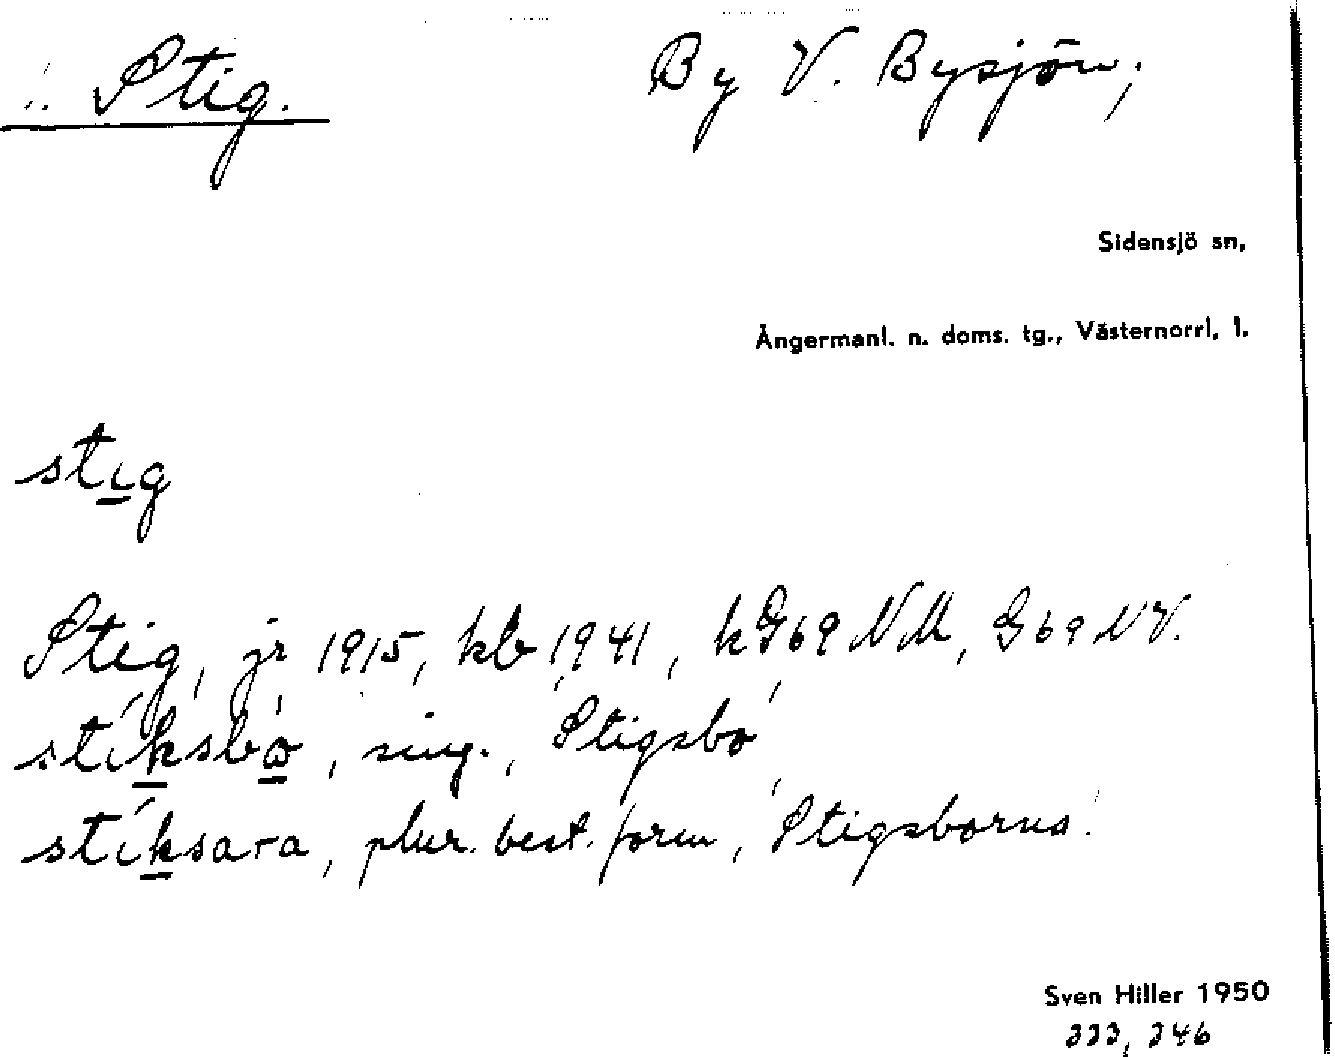 Stig.
By V. Bysjön;
Sidensjö sn,
Ångermanl. n. doms. tg., Västernorrl. l.
stig
Stig, jr 1915, kb 1941, kG69 NM, G69 NV.
stíksbo, sing., 'Stigsbo'
stíksara, plur. best. form, 'Stigsborna'.
Sven Hiller 1950
333, 346